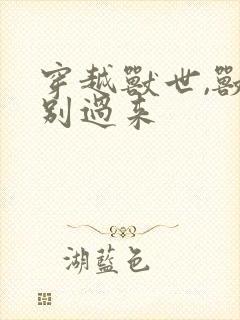 穿越獸世,獸
別過来
湖藍色